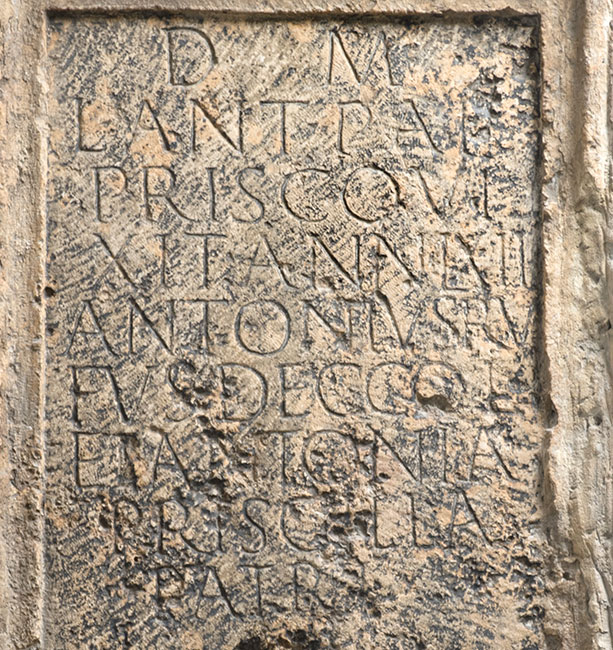 D M
L ANT PAL
PRISCO VI
XIT ANN LXII
ANTONIVS RV
FVS DEC COL
ET ANTONIA
PRISCILLA
PATRI